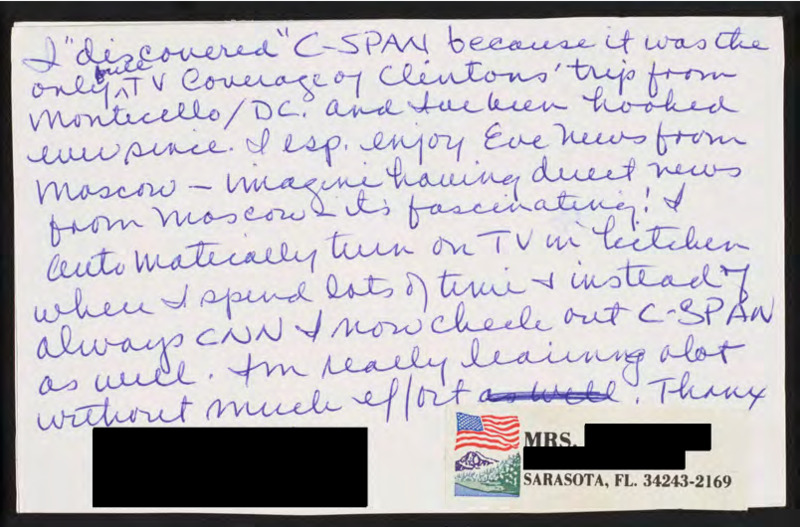 I "discovered" C-SPAN because it was the
only full TV Coverage of Clintons' trip from
Monticello/DC. and I've been hooked
ever since. I esp. enjoy Eve News from
Moscow – imagine having direct news
from Moscow – it's fascinating! I
automatically turn on TV in kitchen
where I spend lots of time & instead of
always CNN I now check out C-SPAN
as well. I'm really learning alot
without much effort as well. Thanx
MRS.
SARASOTA, FL. 34243-2169